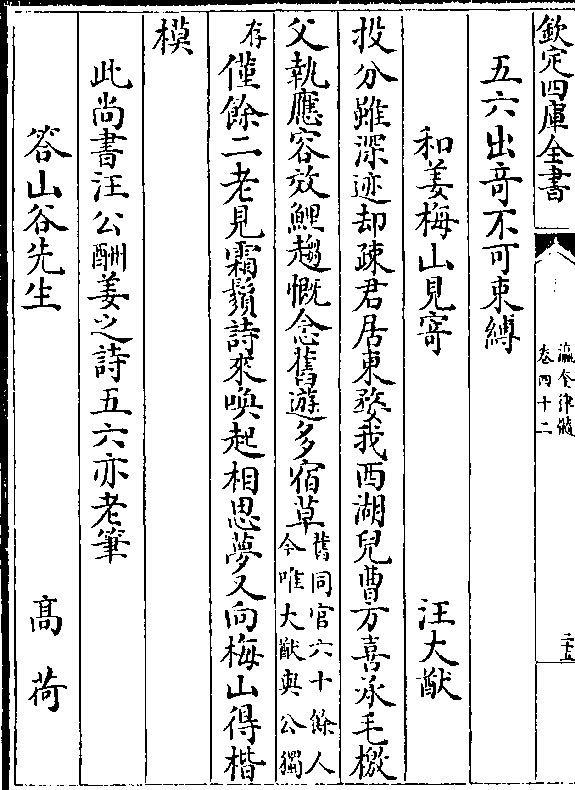 欽定四庫全書
瀛奎律髓
卷四十二
二十五
五六出竒不可束縛
和姜梅山見寄 汪大猷
投分雖深迹却疎君居東婺我西湖兒曹方喜承毛檄
父執應容效鯉趨慨念舊遊多宿草舊同官六十餘人今唯大猷與公獨
存僅餘二老見霜鬚詩來喚起相思夢又向梅山得楷
模
此尚書汪公酬姜之詩五六亦老筆
答山谷先生 髙荷